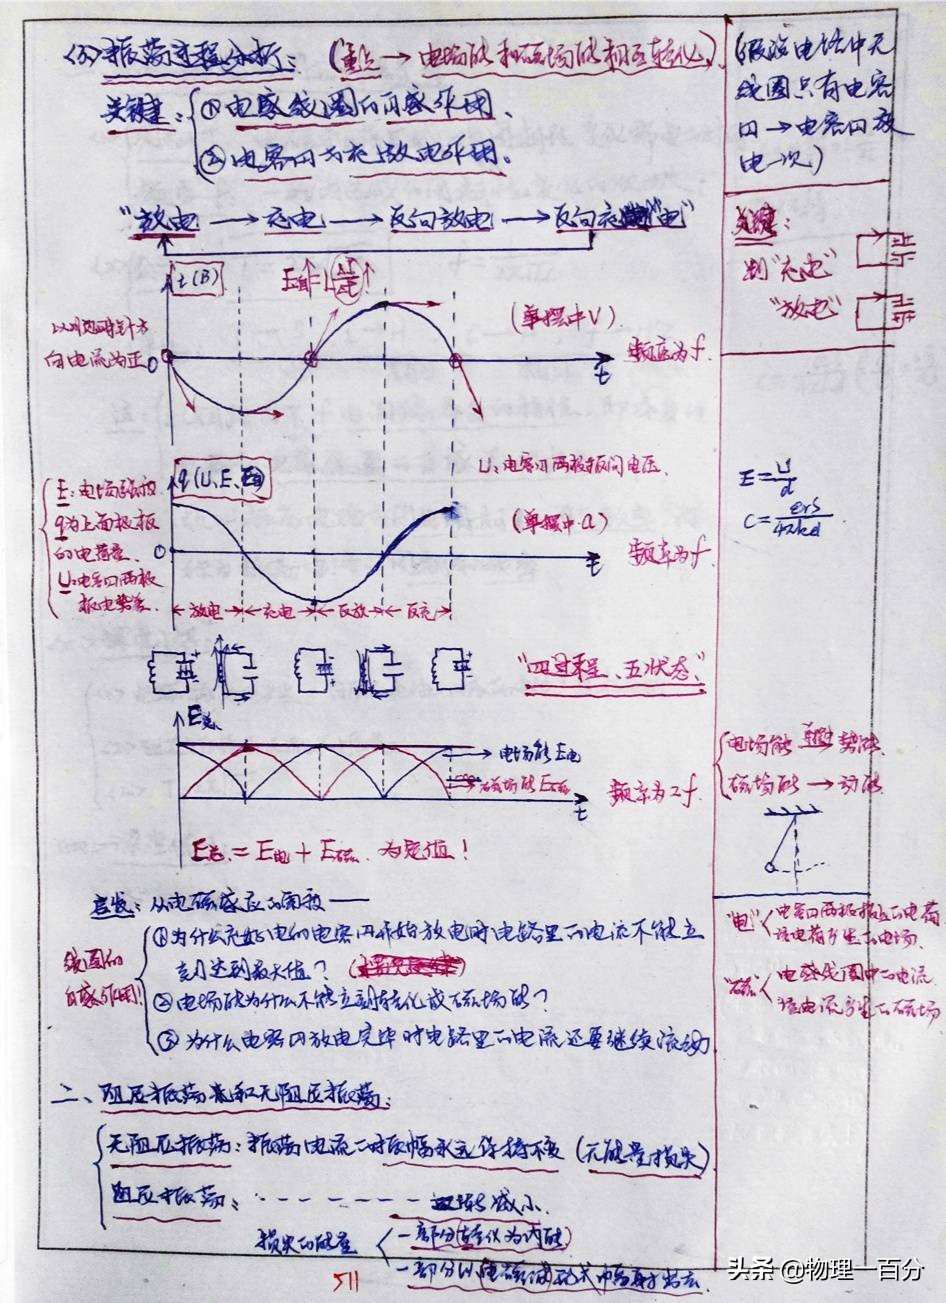 (5)振荡过程分析: (重点→电场能和磁场能相互转化)
关键: ①电感线圈的自感作用.
②电容的充放电作用.
"放电"→充电→反向放电→反向充"电"
i(B)
E自=L ΔI/Δt ↑
(单摆中V)
以顺时针方
向电流为正
0
频率为f.
t
q(U、E、E电)
U:电容两极板间电压.
E:电场强度
q为上面极板
的电荷量.
U:电容两极
板电势差.
(单摆中a)
0
频率为f
t
放电 充电 反放 反充
"四过程、五状态"
E总
电场能E电
磁场能E磁
频率为2f.
t
E总=E电+E磁 为定值!
意见:从电磁感应的角度——
线圈的
自感作用!
①为什么充好电的电容开始放电时电路里的电流不能立
刻达到最大值?
②电场能为什么不能立刻转化成磁场能?
③为什么电容放电完毕时电路里的电流还要继续流动
二、阻尼振荡和无阻尼振荡:
无阻尼振荡:振荡电流的振幅永远保持不变(无能量损失)
阻尼振荡: - - - - - - - 逐渐减小.
损失的能量 一部分转化为内能
一部分以电磁波形式辐射出去
511
(假设电路中无
线圈只有电容
→电容放
电一次)
关键:
判"充电"
"放电"
E=U/d
C=εrS/4πkd
电场能 → 势能
磁场能 → 动能
"电" 电容两极板上的电荷
该电荷产生的电场.
"磁" 电感线圈中的电流
该电流产生的磁场
头条 @物理一百分